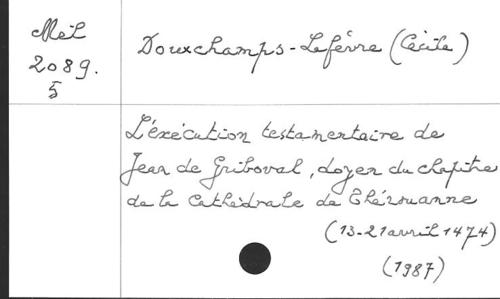 Mél
2089.
5
Douxchamps-Lefèvre (Cécile)
L'exécution testamentaire de
Jean de Griboval, doyen du chapitre
de la Cathédrale de Thérouanne
(13-21 avril 1474)
(1987)